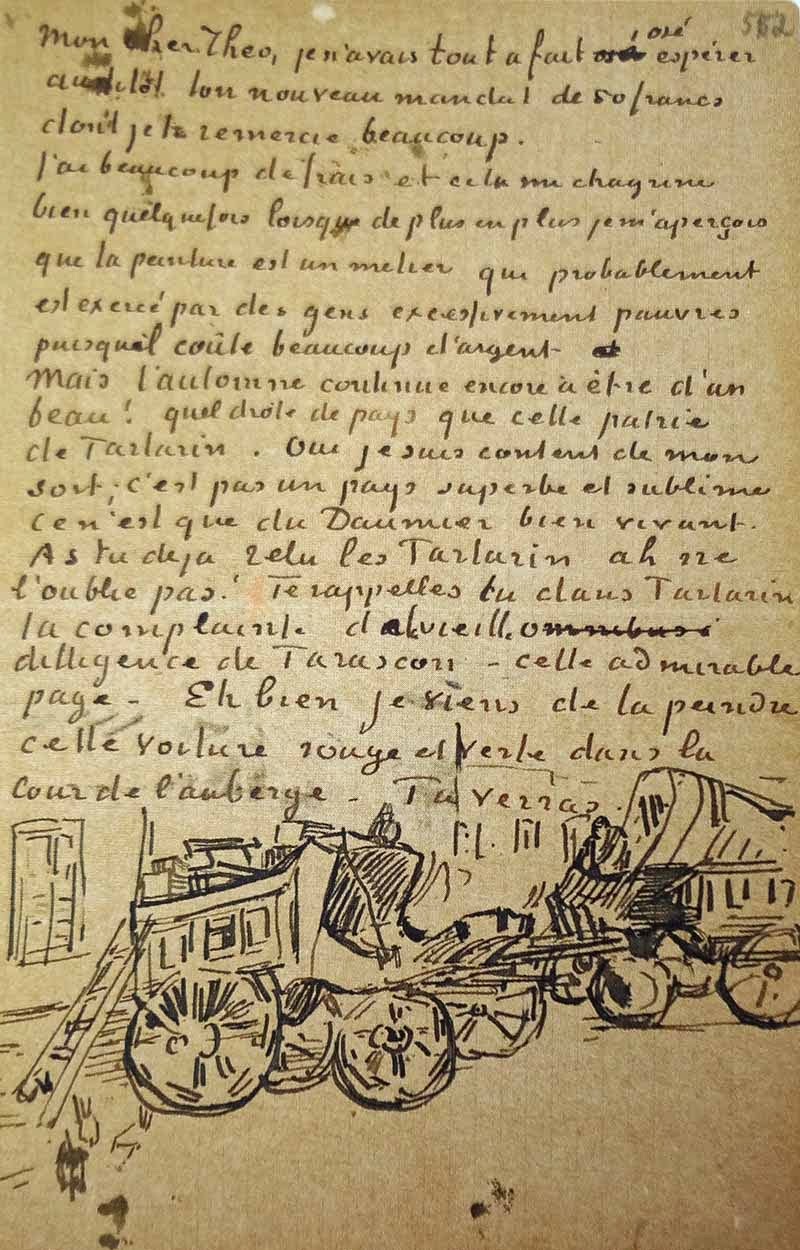 552
osé
Mon cher Theo, je n'avais tout a fait espérer
aussitôt ton nouveau mandat de 50 francs
dont je te remercie beaucoup.
J'ai beaucoup de frais et cela me chagrine
bien quelquefois lorsque de plus en plus je m'aperçois
que la peinture est un metier qui probablement
est exercé par des gens excessivement pauvres
puisqu'il coûte beaucoup d'argent
Mais l'automne continue encore à être d'un
beau! quel drôle de pays que cette patrie
de Tartarin. Oui je suis content de mon
sort, c'est pas un pays superbe et sublime
ce n'est que du Daumier bien vivant.
As tu deja relu les Tartarin ah ne
l'oublie pas! Te rappelles tu dans Tartarin
la complainte de la vieille omnibus
dilligence de Tarascon - cette admirable
page - Eh bien je viens de la peindre
cette voiture rouge et verte dans la
cour de l'auberge - Tu verras.